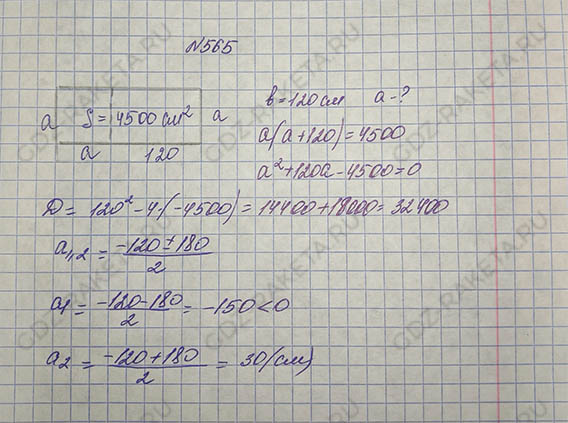 N565
a S = 4500 см² a
a 120
b = 120 см a - ?
a(a + 120) = 4500
a² + 120a - 4500 = 0
D = 120² - 4·(-4500) = 14400 + 18000 = 32400
a₁,₂ = (-120 ± 180) / 2
a₁ = (-120 - 180) / 2 = -150 < 0
a₂ = (-120 + 180) / 2 = 30 (см)
GDZ-RAKETA.RU